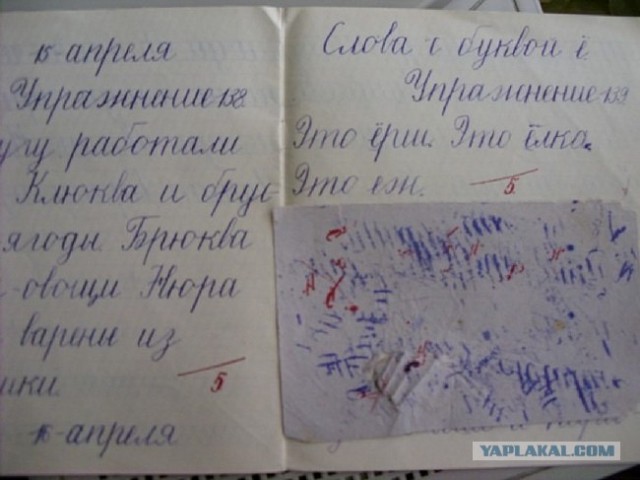 15 апреля
Упражнение 158.
работали
Клюква и брус-
ягоды. Брюква
овощи. Нюра
варенье из
5
16 апреля
Слова с буквой ё.
Упражнение 159
Это ёрш. Это ёлка.
Это еж.
5
YAPLAKAL.COM